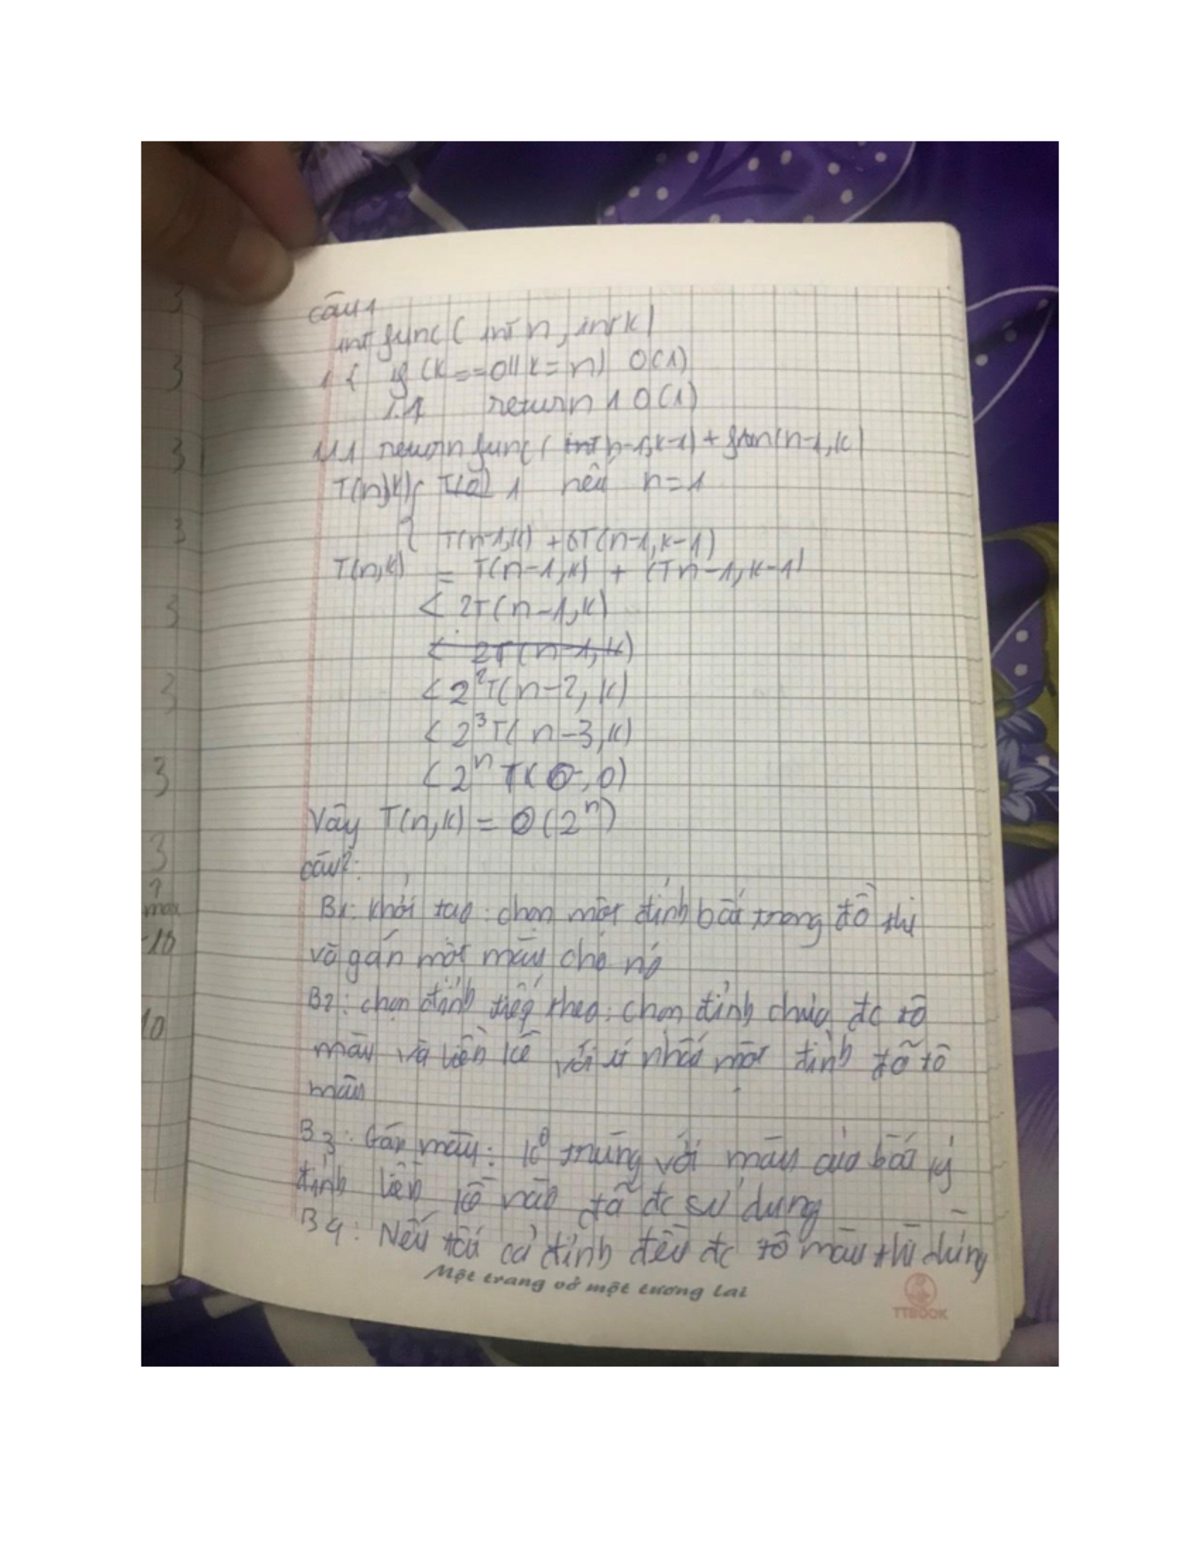 3
3
3
3
3
3
3
3
max
-10
10
Câu 1
int func ( int n, int k)
1 { if (k == 0 || k = n) O(1)
1.1 return 1 O(1)
1.1.1 return func( int n-1, k-1) + fun(n-1, k)
T(n,k) { T(0) 1 nếu n = 1
{ T(n-1,k) + 6T(n-1, k-1)
T(n,k) = T(n-1, k) + (Tn-1, k-1)
< 2T(n-1, k)
< 2T(n-1, k)
< 2²T(n-2, k)
< 2³T(n-3, k)
< 2ⁿ T(0, 0)
Vậy T(n,k) = O(2ⁿ)
Câu 2:
B1: Khởi tạo: chọn một đỉnh bất trong đồ thị
và gán một màu cho nó
B2: chọn đỉnh tiếp theo: chọn đỉnh chưa đc tô
màu và liền kề với ít nhất một đỉnh đã tô
màu
B3: Gán màu: k⁰ trùng với màu của bất kỳ
đỉnh liền kề nào đã đc sử dụng
B4: Nếu tất cả đỉnh đều đc tô màu thì dừng
Một trang vở một tương lai
TTBOOK